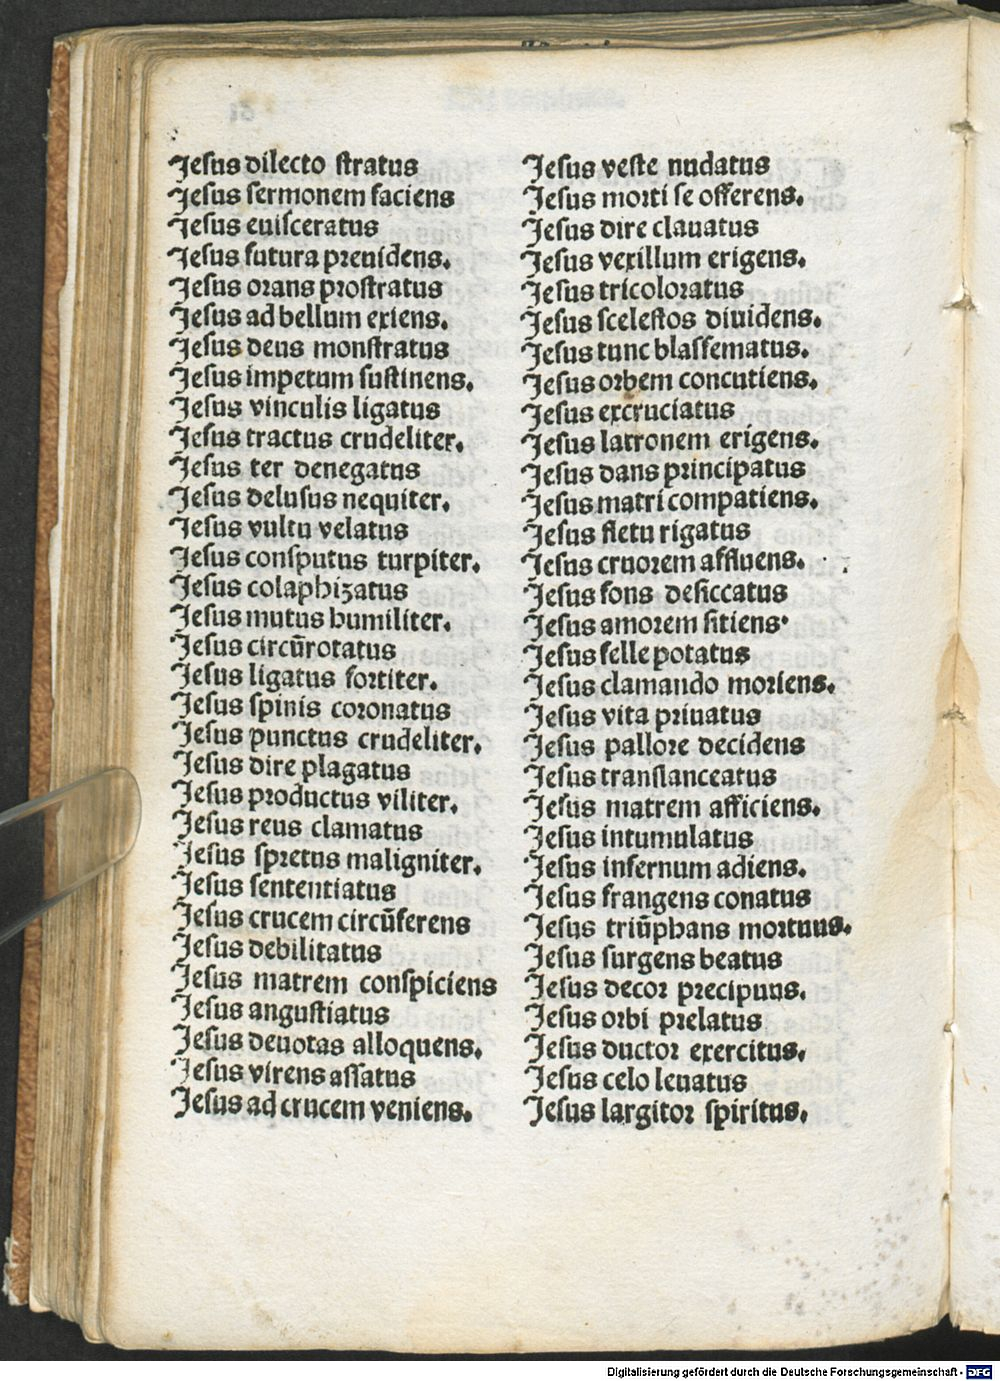 Jesus dilecto stratus
Jesus sermonem faciens
Jesus euisceratus
Jesus futura preuidens.
Jesus orans prostratus
Jesus ad bellum exiens.
Jesus deus monstratus
Jesus impetum sustinens.
Jesus vinculis ligatus
Jesus tractus crudeliter.
Jesus ter denegatus
Jesus delusus nequiter.
Jesus vultu velatus
Jesus consputus turpiter.
Jesus colaphizatus
Jesus mutus humiliter.
Jesus circūrotatus
Jesus ligatus fortiter.
Jesus spinis coronatus
Jesus punctus crudeliter.
Jesus dire plagatus
Jesus productus viliter.
Jesus reus clamatus
Jesus spretus maligniter.
Jesus sententiatus
Jesus crucem circūferens
Jesus debilitatus
Jesus matrem conspiciens
Jesus angustiatus
Jesus deuotas alloquens.
Jesus virens assatus
Jesus ad crucem veniens.
Jesus veste nudatus
Jesus morti se offerens.
Jesus dire clauatus
Jesus vexillum erigens.
Jesus tricoloratus
Jesus scelestos diuidens.
Jesus tunc blasfematus.
Jesus orbem concutiens.
Jesus excruciatus
Jesus latronem erigens.
Jesus dans principatus
Jesus matri compatiens.
Jesus fletu rigatus
Jesus cruorem affluens.
Jesus fons desiccatus
Jesus amorem sitiens
Jesus felle potatus
Jesus clamando moriens.
Jesus vita priuatus
Jesus pallore decidens
Jesus translanceatus
Jesus matrem afficiens.
Jesus intumulatus
Jesus infernum adiens.
Jesus frangens conatus
Jesus triūphans mortuus.
Jesus surgens beatus
Jesus decor precipuus.
Jesus orbi prelatus
Jesus ductor exercitus.
Jesus celo leuatus
Jesus largitor spiritus.
Digitalisierung gefördert durch die Deutsche Forschungsgemeinschaft - DFG